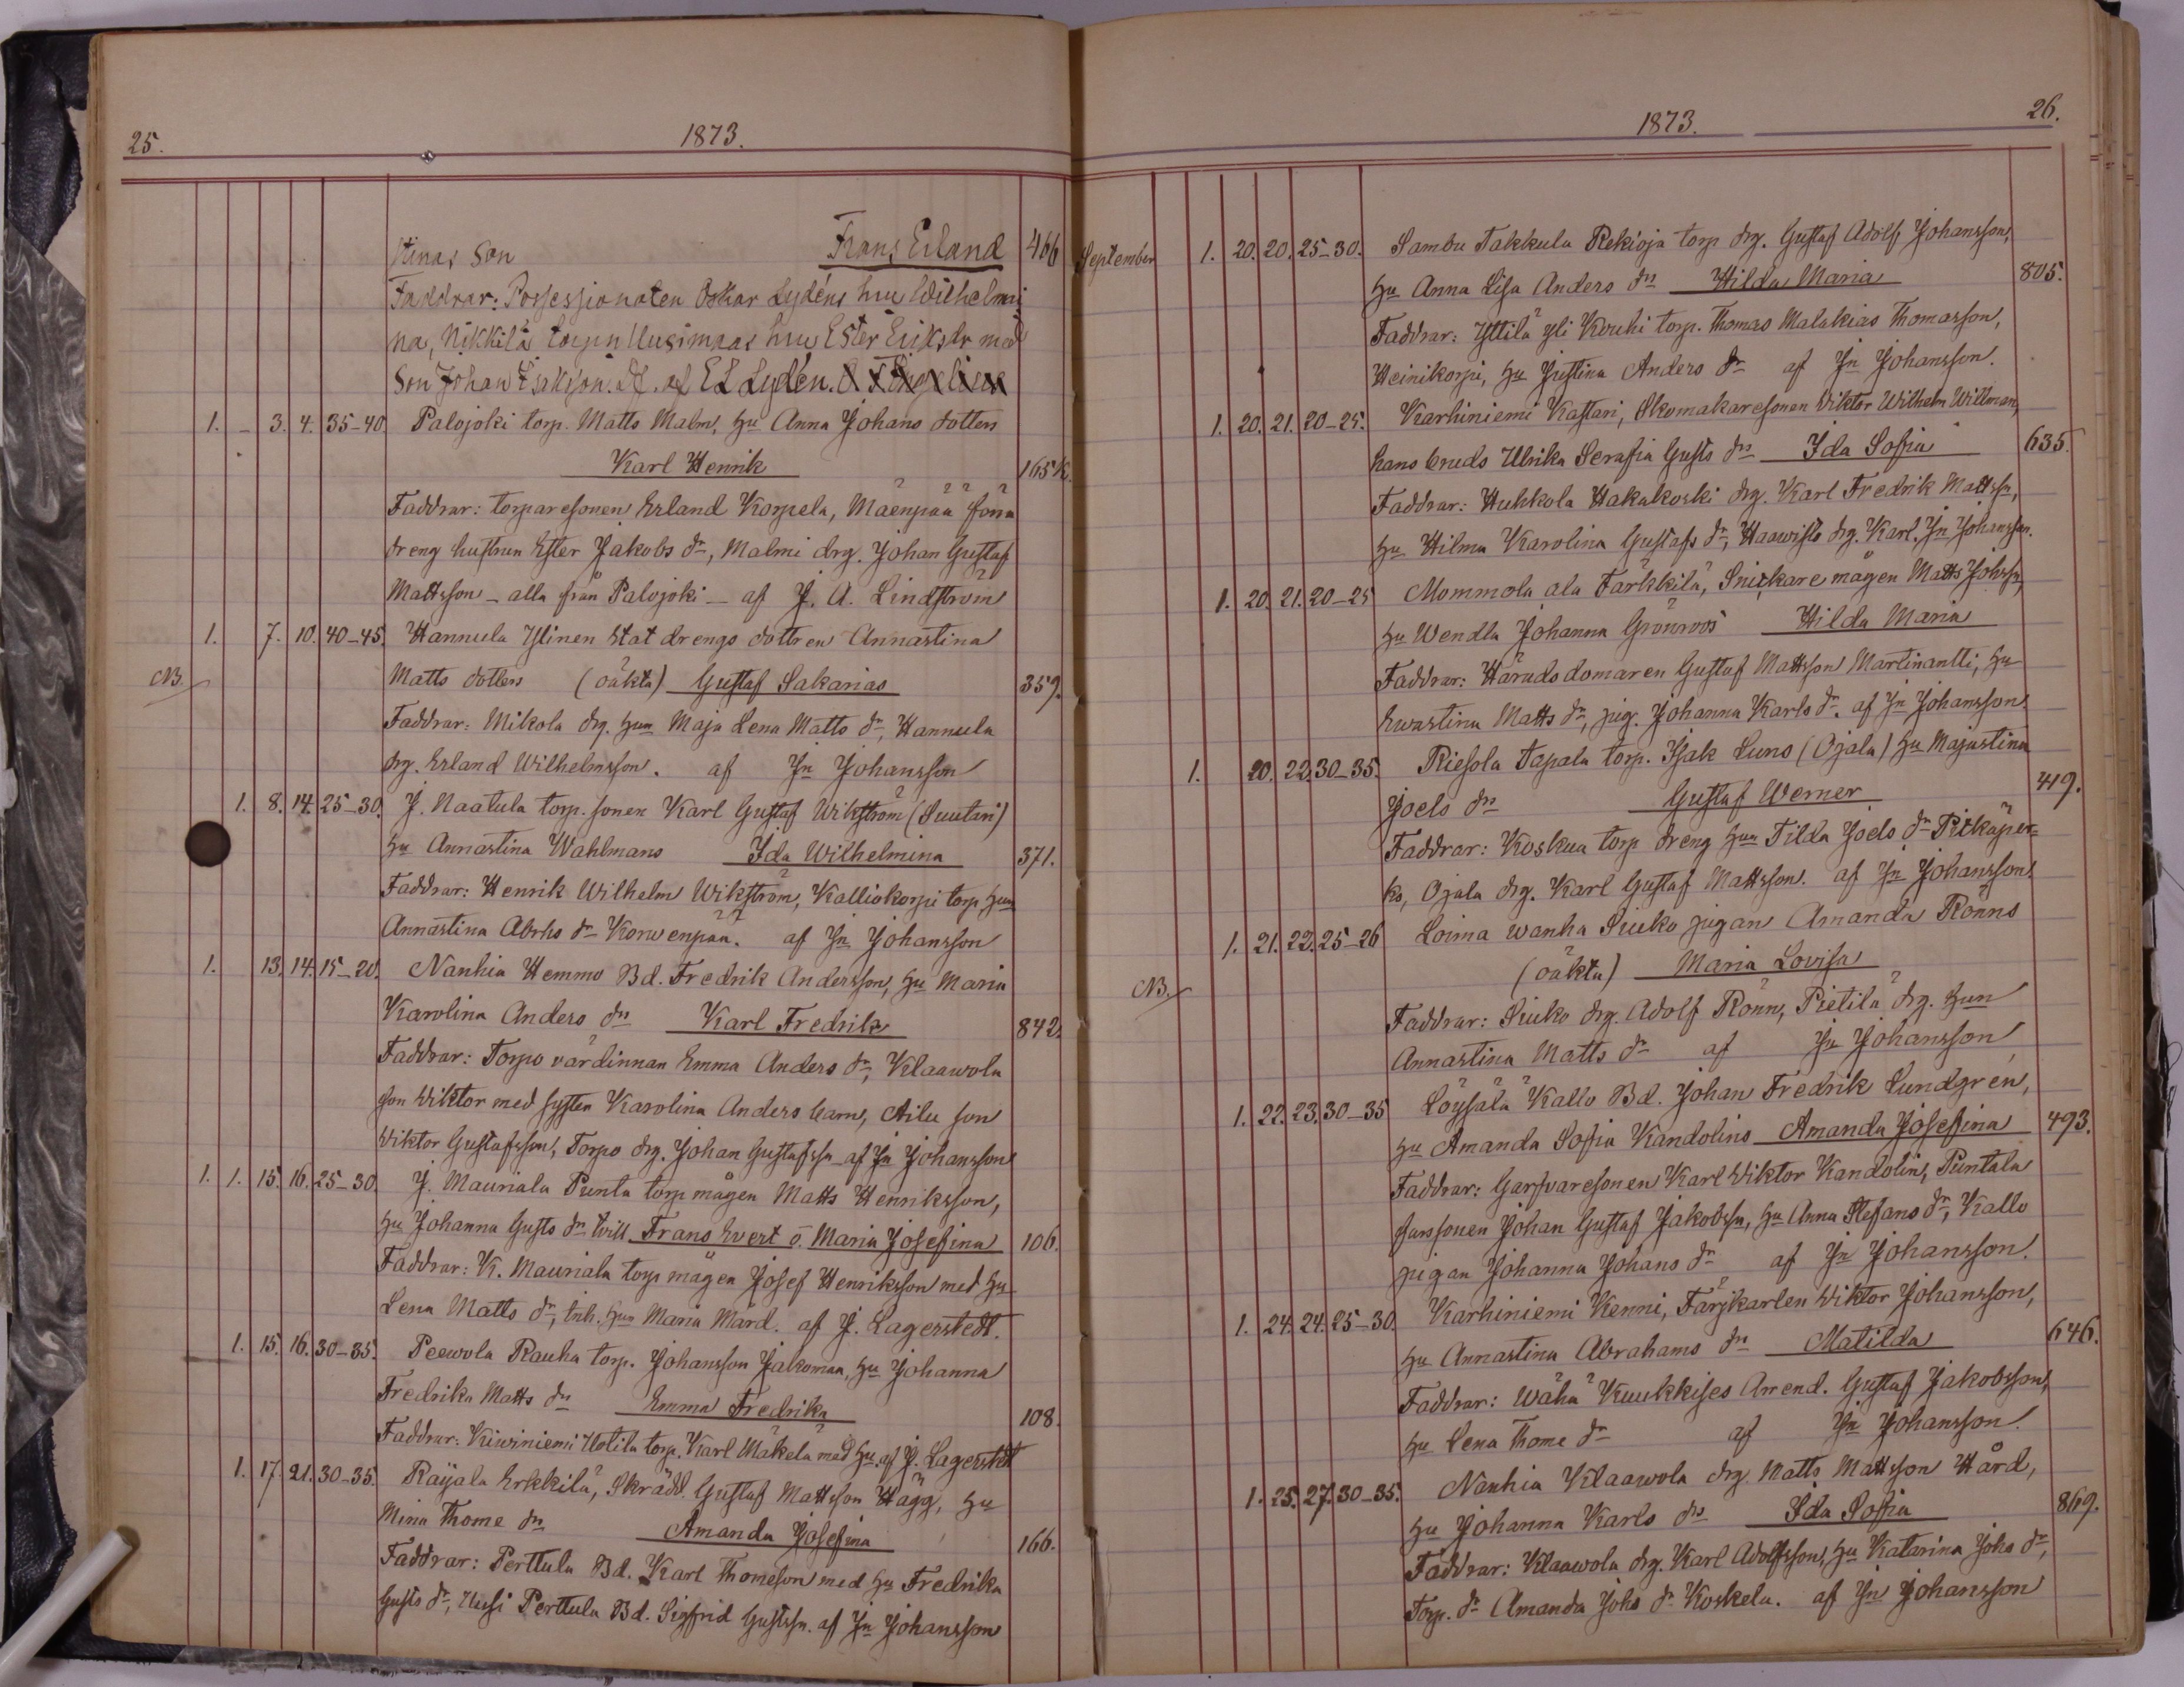 25. 1873.
Stinas Son Frans Erland 466
Faddrar: Possessionaten Oskar Lydéns hu Wilhelmi
na, Nikkilä torpn Uusimaas hu Ester Eriksdr med
Son Johan Isaksson. Df. af E L Lydén.
1. – 3. 4. 35–40. Palojoki torp. Matts Malm, Hu Anna Johans dotters
Karl Henrik 165 K.
Faddrar: torparesonen Erland Korpela, Mäenpää
dreng hustrun Ester Jakobs dr, Malmi drg. Johan Gustaf
Mattsson – alla från Palojoki – af J. A. Lindström
1. 7. 10. 40–45. Hannula Ylinen Stat drengs dottren Annastina
NB. Matts dotters (oäkta) Gustaf Sakarias 359.
Faddrar: Mikola drg. Hun Maja Lena Matts dr, Hannula
drg. Erland Wilhelmsson. af Jn Johansson
1. 8. 14. 25–30. Y. Naatula torp. sonen Karl Gustaf Wikström (Suutari)
Hu Annastina Wahlmans Ida Wilhelmina 371.
Faddrar: Henrik Wilhelm Wikström, Kalliokorpi torp. Hun
Annastina Abrhs dr Korwenpää. af Jn Johansson
1. 13. 14. 15–20. Nanhia Hemmo Bd. Fredrik Andersson, Hu Maria
Karolina Anders drs Karl Fredrik 842.
Faddrar: Torpo värdinnan Emma Anders dr, Klaawola
son Wiktor med syster Karolina Anders barn, Ailu son
Wiktor Gustafsson, Torpo drg. Johan Gustafssn af Jn Johansson
1. 1. 15. 16. 25–30. Y. Mauriala Punta torp mågen Matts Henriksson,
Hu Johanna Gusts dr twill. Frans Evert o. Maria Josefina 106.
Faddrar: K. Mauriala torp mågen Josef Henriksson med Hu
Lena Matts dr, Inh. Hun Maria Mård. af J. Lagerstedt.
1. 15. 16. 30–35. Peewola Rauha torp. Johansson Jakomaa, Hu Johanna
Fredrika Matts drs Emma Fredrika 108.
Faddrar: Kiwiniemi Uotila torp. Karl Mäkelä med Hu. af J. Lagerstedt
1. 17. 21. 30–35. Raijala Erkkilä, Skrädd. Gustaf Mattsson Hägg, Hu
Mina Thome drs Amanda Josefina 166.
Faddrar: Perttula Bd. Karl Thomeson med Hu Fredrika
Gusts dr, Uusi Perttula Bd. Sigfrid Gustssn. af Jn Johansson
1873. 26.
September 1. 20. 20. 25–30. Sambu Takkula Rekioja torp drg. Gustaf Adolf Johansson,
Hu Anna Lisa Anders drs Hilda Maria 805.
Faddrar: Yttilä Yli Kouhi torp. Thomas Malakias Thomasson,
Heinikorpi, Hu Justina Anders dr af Jn Johansson.
1. 20. 21. 20–25. Karhiniemi Kastari, Skomakaresonen Wiktor Wilhelm Willman,
hans bruds Ulrika Serafia Gusts drs Ida Sofia 635.
Faddrar: Huhkola Hakakoski drg. Karl Fredrik Mattssn,
Hu Hilma Karolina Gustafs dr, Haawisto drg. Karl. Jn Johansson.
1. 20. 21. 20–25 Mommola ala Farkkilä, Snickare mågen Matts Johssn,
Hu Wendla Johanna Grönroos Hilda Maria
Faddrar: Häradsdomaren Gustaf Mattsson Martinantti, Hu
Ewastina Matts dr, pig. Johanna Karls dr. af Jn Johansson
1. 20. 22. 30–35. Riesola Tapala torp. Isak Luns (Ojala) Hu Majastina
Joels drs Gustaf Werner 419.
Faddrar: Koskua torp dreng Hun Tilda Joels dr Pitkäper-
ko, Ojala drg. Karl Gustaf Mattsson. af Jn Johansson
1. 21. 22. 25–26 Loima wanha Siuko pigan Amanda Rönns
NB. (oäkta) Maria Lovisa
Faddrar: Siuko drg. Adolf Rönn, Pietilä drg. Hun
Annastina Matts dr af Jn Johansson
1. 22. 23. 30–35 Löysälä Kallo Bd. Johan Fredrik Lundgrén,
Hu Amanda Sofia Kandolins Amanda Josefina 493.
Faddrar: Garfvaresonen Karl Wiktor Kandolin, Puntala
Johan Gustaf Jakobssn, Hu Anna Stefans dr, Kallo
pigan Johanna Johans dr af Jn Johansson.
1. 24. 24. 25–30. Karhiniemi Kenni, Färjkarlen Wiktor Johansson,
Hu Annastina Abrahams drs Matilda 646.
Faddrar: Wähä Kuukkises Arrend. Gustaf Jakobsson,
Hu Lena Thome dr af Jn Johansson.
1. 25. 27. 30–35. Nanhia Klaawola drg. Matts Mattsson Hård,
Hu Johanna Karls drs Ida Sofia 869.
Faddrar: Klaawola drg. Karl Adolfsson, Hu Katarina Johs dr,
Torp. dr Amanda Johs dr Koskela. af Jn Johansson